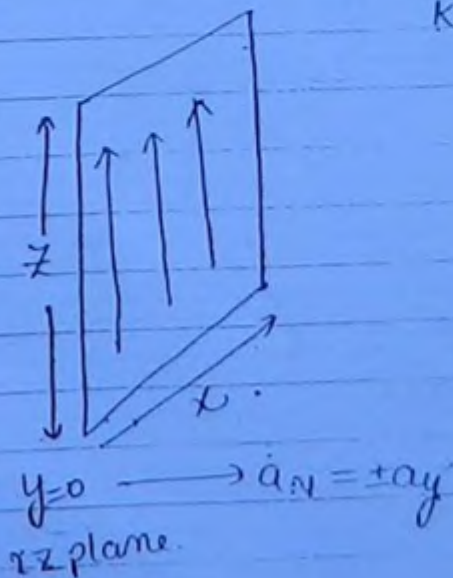 K
Z
x.
y=0 → a_N = ±ay
xz plane.